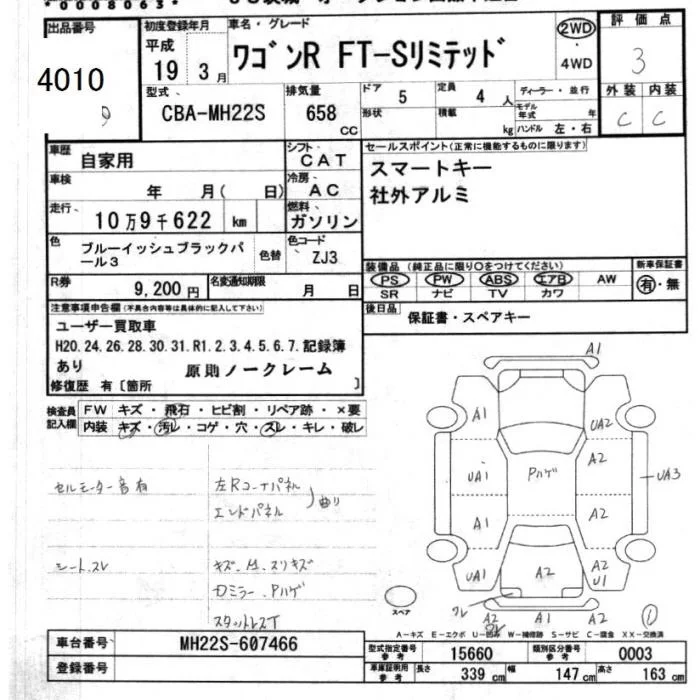 *0008063*
出品番号
4010
初度登録年月
平成
19 3月
車名・グレード
ワゴンR FT-Sリミテッド
2WD
・
4WD
評価点
3
型式、
CBA-MH22S
排気量
658
CC
ドア
5
定員
4人
形状
積載
kg
ディーラー・並行
モデル年式 年
ハンドル 左・右
外装 内装
C C
車歴
自家用
シフト、
CAT
車検
年 月( 日)
冷房、
AC
走行、
10万9千622 km
燃料、
ガソリン
色
ブルーイッシュブラックパール3
色替
色コード
ZJ3
R券
9,200円
名変通知期限
月 日
セールスポイント(正常に機能するものに限ります)
スマートキー
社外アルミ
装備品(純正品に限り○をつけてください)
PS PW ABS エアB AW
SR ナビ TV カワ
新車保証書
有・無
後日品
保証書・スペアキー
注意事項申告欄(不具合内容等は具体的に記入して下さい)
ユーザー買取車
H20.24.26.28.30.31.R1.2.3.4.5.6.7.記録簿
あり 原則ノークレーム
修復歴 有〔箇所 〕
検査員記入欄
FW キズ・飛石・ヒビ割・リペア跡・×要
内装 キズ・汚レ・コゲ・穴・スレ・キレ・破レ
セルモーター音有
左Rコーナパネル
エンドパネル
曲り
シートスレ
キズ、凹、スリキズ
Dミラー、Pハゲ
スタットレスT
A1
A1
UA2
A2
UA1
Pハゲ
UA3
A1
A2
UA1
A2
A2
U1
ワレ
A2
ワレ
A1
A2
①
スペア
A-キズ E-エクボ U-凹み W-補修跡 S-サビ C-腐食 XX-交換済
車台番号
MH22S-607466
登録番号
型式指定番号
参考
15660
類別区分番号
参考
0003
車庫証明用
参考
長さ
339 cm
幅
147 cm
高さ
163 cm